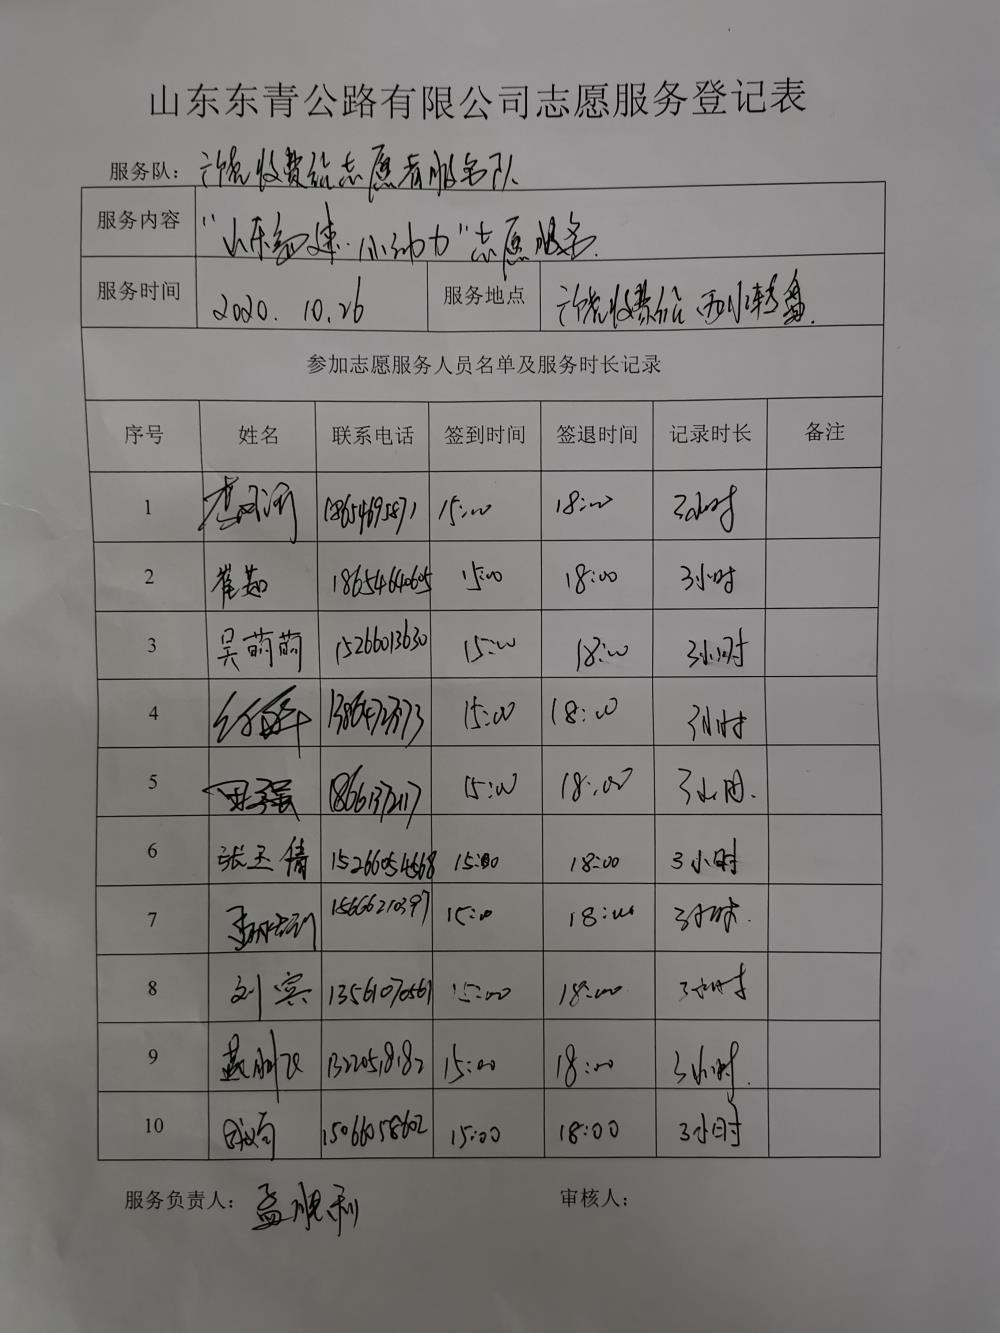 山东东青公路有限公司志愿服务登记表
服务队: 收费站志愿者服务队
服务内容 "山东高速·小动力"志愿服务.
服务时间 2020. 10. 26 服务地点 收费站
参加志愿服务人员名单及服务时长记录
序号 姓名 联系电话 签到时间 签退时间 记录时长 备注
1 18654695871 15:00 18:00 3小时
2 崔茹 18654640605 15:00 18:00 3小时
3 吴萌萌 15266013630 15:00 18:00 3小时
4 15:00 18:00 3小时
5 田强 15:00 18:00 3小时.
6 张玉倩 15266054668 15:00 18:00 3小时
7 15666210397 15:00 18:00 3小时.
8 刘宾 13561070561 15:00 18:00 3小时
9 15:00 18:00 3小时.
10 15066058602 15:00 18:00 3小时
服务负责人: 孟顺利 审核人: